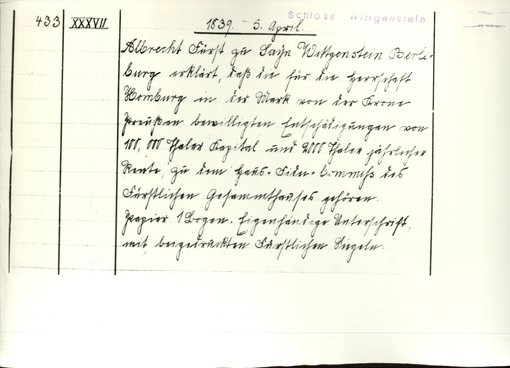 Schloss Wittgenstein
433 XXXVII 1839. 5. April.
Albrecht Fürst zu Sayn Wittgenstein Berle-
burg erklärt, daß die für die Herrschaft
Homburg in der Mark von der Krone
Preußen bewilligten Entschädigungen von
100,000 Thaler Kapital und 2000 Thaler jährlicher
Rente, zu dem Haus-Fidei-Commiß des
Fürstlichen Gesammthauses gehören.
Papier 1 Bogen. Eigenhändige Unterschrift,
mit beigedrückten Fürstlichen Siegeln.